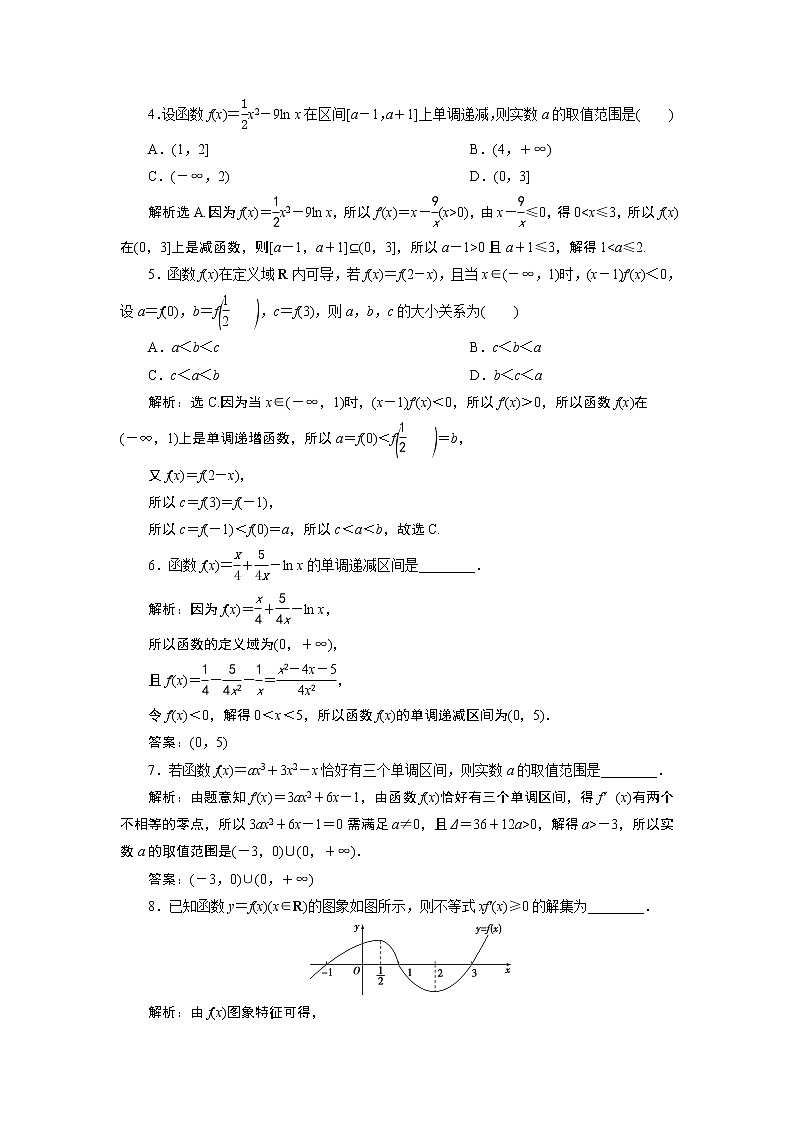 4.设函数 f(x)=1/2x²-9ln x在区间[a-1,a+1]上单调递减,则实数a的取值范围是(　　)
A.(1,2]　　B.(4,+∞)
C.(-∞,2)　　D.(0,3]
解析选A.因为f(x)=1/2x²-9ln x,所以f′(x)=x-9/x(x>0),由x-9/x≤0,得0<x≤3,所以f(x)
在(0,3]上是减函数,则[a-1,a+1]⊆(0,3],所以a-1>0且a+1≤3,解得1<a≤2.
5.函数f(x)在定义域R内可导,若f(x)=f(2-x),且当x∈(-∞,1)时,(x-1)f′(x)<0,
设a=f(0),b=f(1/2),c=f(3),则a,b,c的大小关系为(　　)
A.a<b<c　　B.c<b<a
C.c<a<b　　D.b<c<a
解析:选C.因为当x∈(-∞,1)时,(x-1)f′(x)<0,所以f′(x)>0,所以函数f(x)在
(-∞,1)上是单调递增函数,所以a=f(0)<f(1/2)=b,
又f(x)=f(2-x),
所以c=f(3)=f(-1),
所以c=f(-1)<f(0)=a,所以c<a<b,故选C.
6.函数f(x)=x/4+5/4x-ln x的单调递减区间是________.
解析:因为f(x)=x/4+5/4x-ln x,
所以函数的定义域为(0,+∞),
且f′(x)=1/4-5/4x²-1/x=x²-4x-5/4x²,
令f′(x)<0,解得0<x<5,所以函数f(x)的单调递减区间为(0,5).
答案:(0,5)
7.若函数f(x)=ax³+3x²-x恰好有三个单调区间,则实数a的取值范围是________.
解析:由题意知f′(x)=3ax²+6x-1,由函数f(x)恰好有三个单调区间,得f′(x)有两个
不相等的零点,所以3ax²+6x-1=0需满足a≠0,且Δ=36+12a>0,解得a>-3,所以实
数a的取值范围是(-3,0)∪(0,+∞).
答案:(-3,0)∪(0,+∞)
8.已知函数y=f(x)(x∈R)的图象如图所示,则不等式xf′(x)≥0的解集为________.
y　y=f(x)
-1　O　1/2　1　2　3　x
解析:由f(x)图象特征可得,